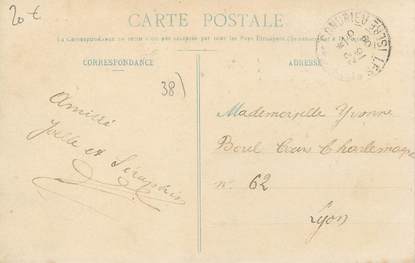 20€
CARTE POSTALE
La Correspondance au recto n'est pas acceptée par tous les Pays Étrangers
CORRESPONDANCE
ADRESSE
38
Amitié
et Séraphin
Mademoiselle Yvonne
Borel Cours Charlemagne
n° 62
Lyon